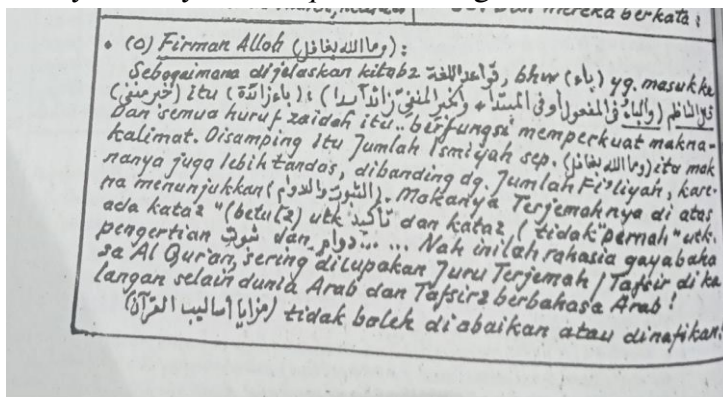 55. Dan mereka berkata :
• (0) Firman Alloh (وما الله بغافل) :
Sebagaimana dijelaskan kitab2 قواعد اللغة, bhw (باء) yg. masuk ke
(خبر منفي) itu (باء زائدة) :
قال الناظم (والباء في المفعول أو في المبتدأ + وخبر المنفي زائدا بدا)
Dan semua huruf zaidah itu.. berfungsi memperkuat makna-
kalimat. Disamping itu Jumlah Ismiyah sep. (وما الله بغافل) itu mak
nanya juga lebih tandas, dibanding dg. Jumlah Fi'liyah, kare-
na menunjukkan (الثبوت والدوام). Makanya Terjemahnya di atas
ada kata2 "(betul2) utk تأكيد dan kata2 ( tidak "pernah" utk.
pengertian ثبوت dan دوام...... Nah inilah rahasia gaya baha
sa Al Qur'an, sering dilupakan Juru Terjemah / Tafsir di ka
langan selain dunia Arab dan Tafsir2 berbahasa Arab !
(مزايا أساليب القرآن) tidak boleh diabaikan atau dinafikan.